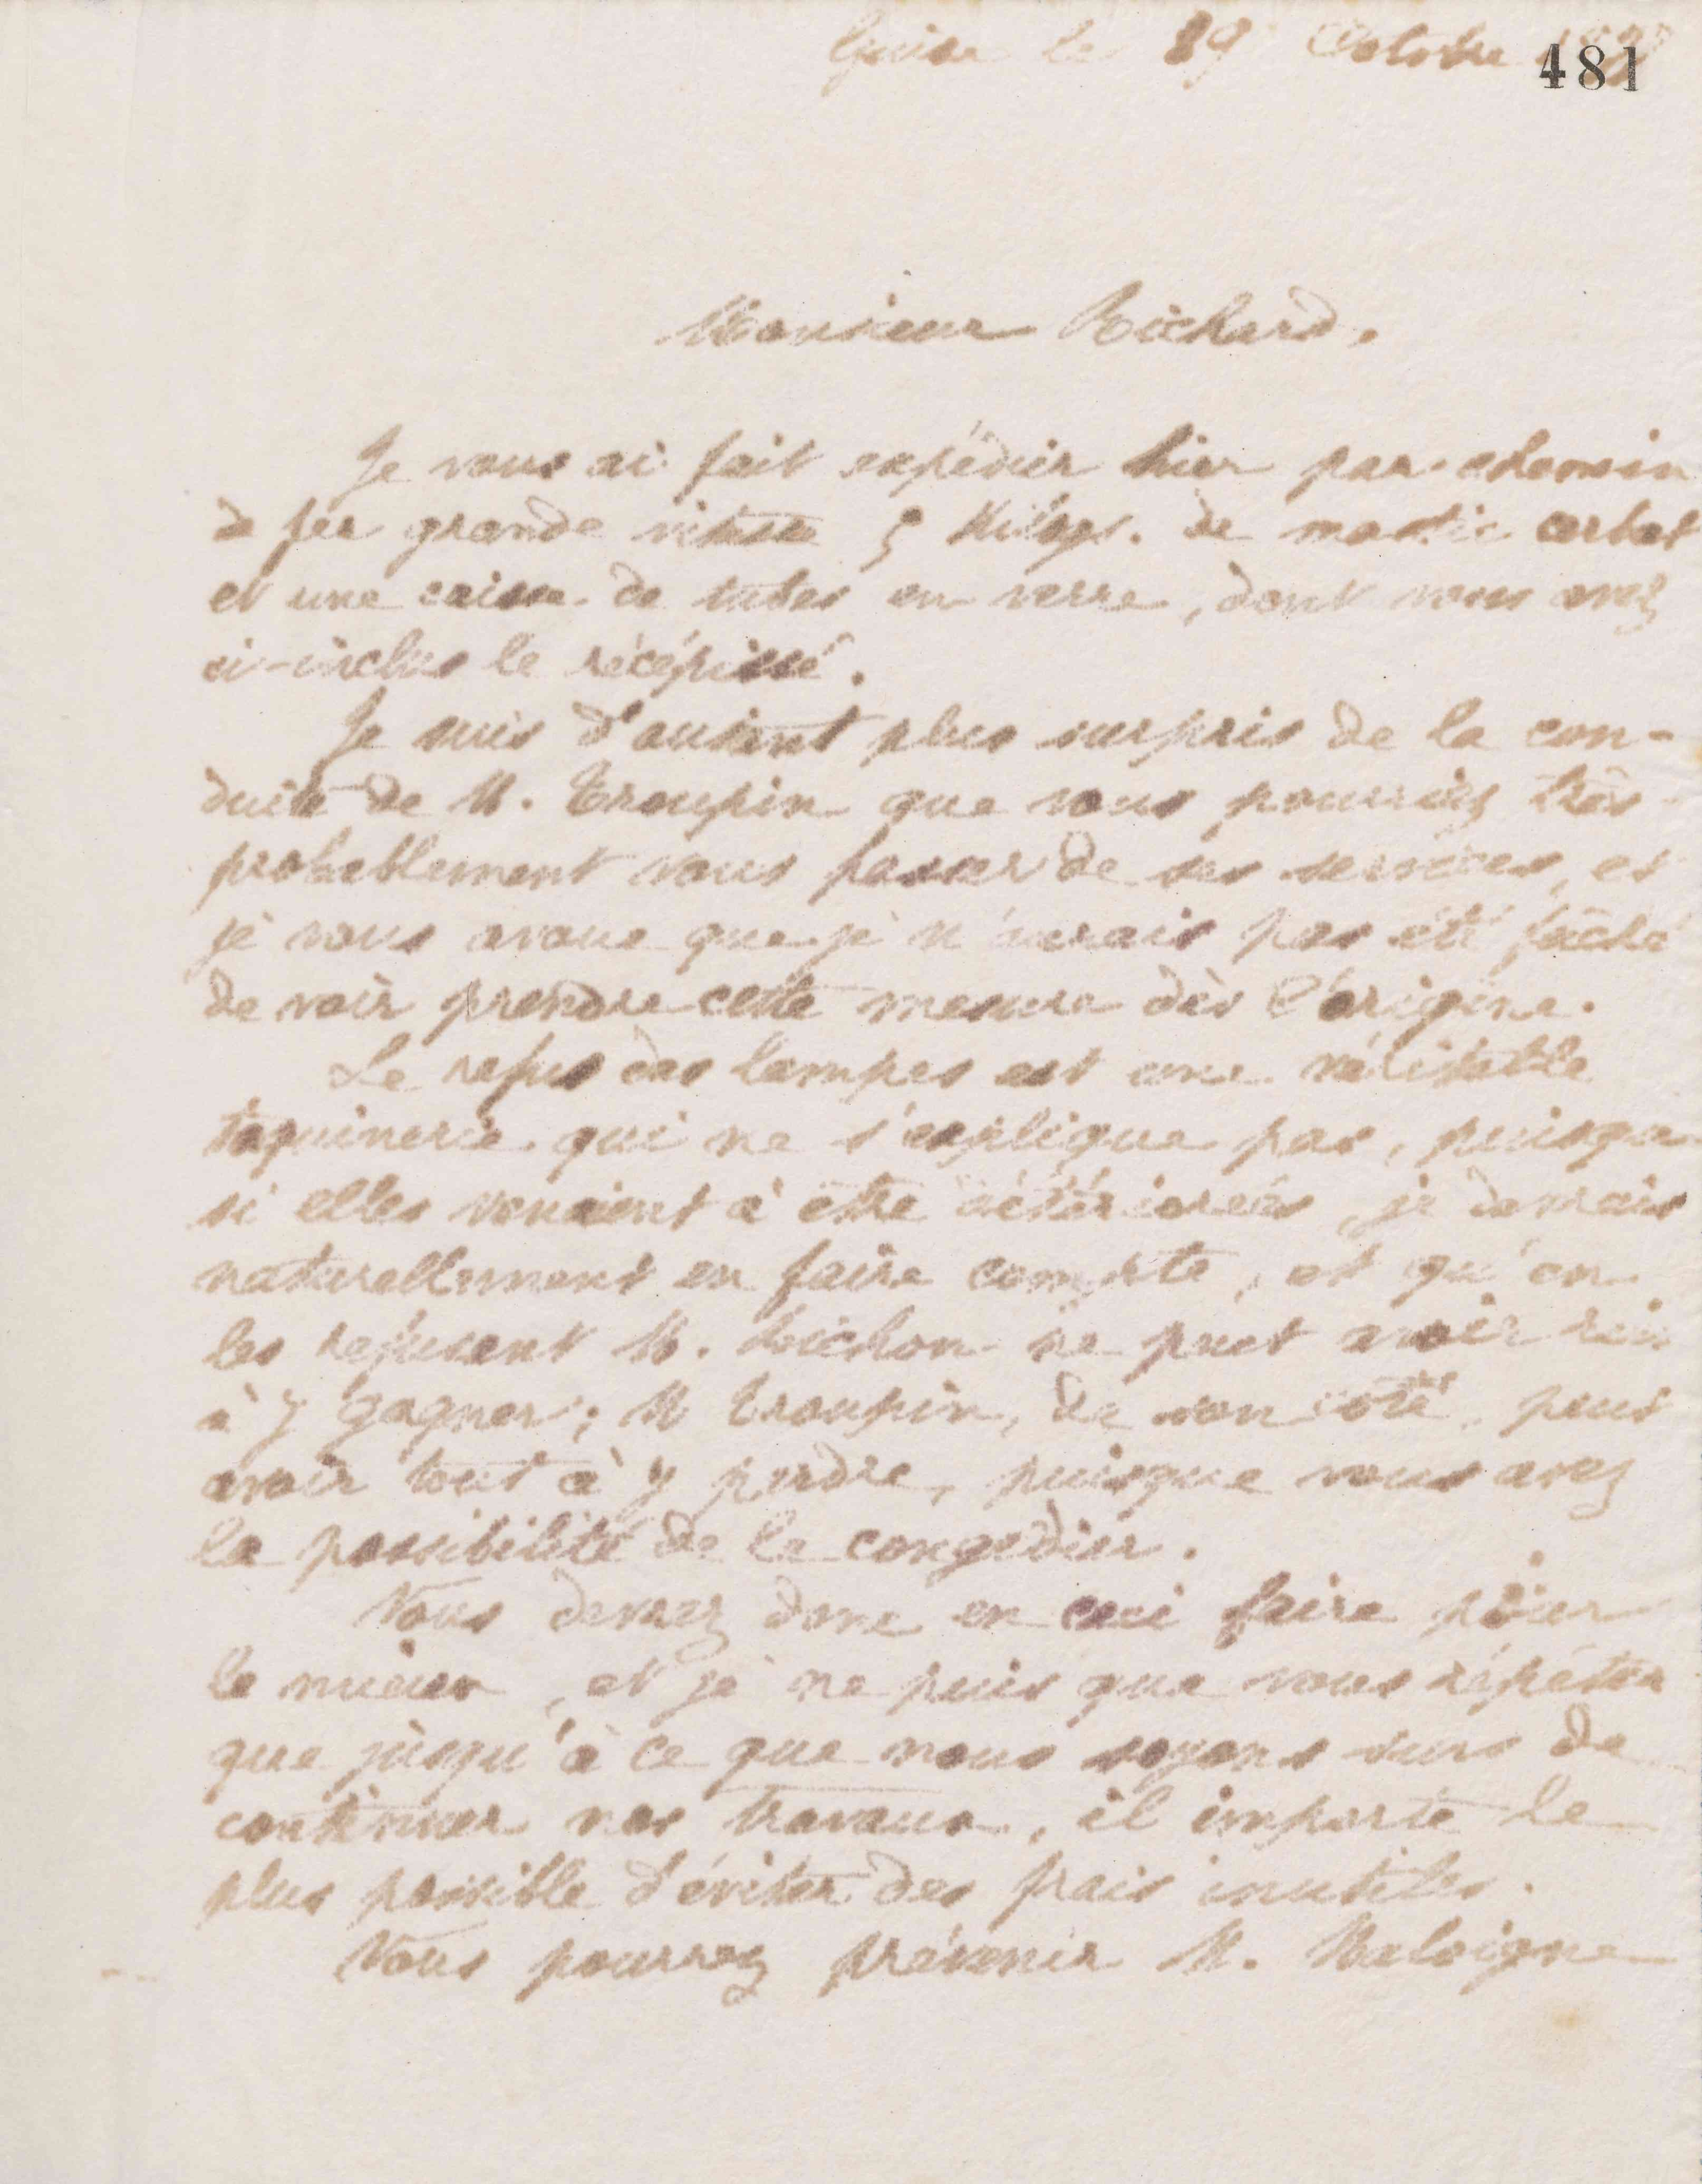 Guise le 19 Octobre
481
Monsieur Richard.
Je vous ai fait expédier hier par chemin
de fer grande vitesse 5 Kilogs. de mastic serbat
et une caisse de tubes en verre, dont vous avez
ci-inclus le récépissé.
Je suis d'autant plus surpris de la con-
duite de M. Troupin que vous pourriez très
probablement vous passer de ses services, et
je vous avoue que je n'aurais pas été fâché
de voir prendre cette mesure dès l'origine.
Le refus des lampes est une véritable
taquinerie qui ne s'explique pas, puisque
si elles venaient à être détériorées, je devrais
naturellement en faire compte, et qu'en
les refusant M. ne peut avoir rien
à y gagner; M Troupin, de son côté, peut
avoir tout à y perdre, puisque vous avez
la possibilité de le congédier.
Vous devrez donc en ceci faire pour
le mieux, et je ne puis que vous répéter
que jusqu'à ce que nous soyons surs de
continuer nos travaux, il importe le
plus possible d'éviter des frais inutiles.
Vous pourrez prévenir M. Maloigne